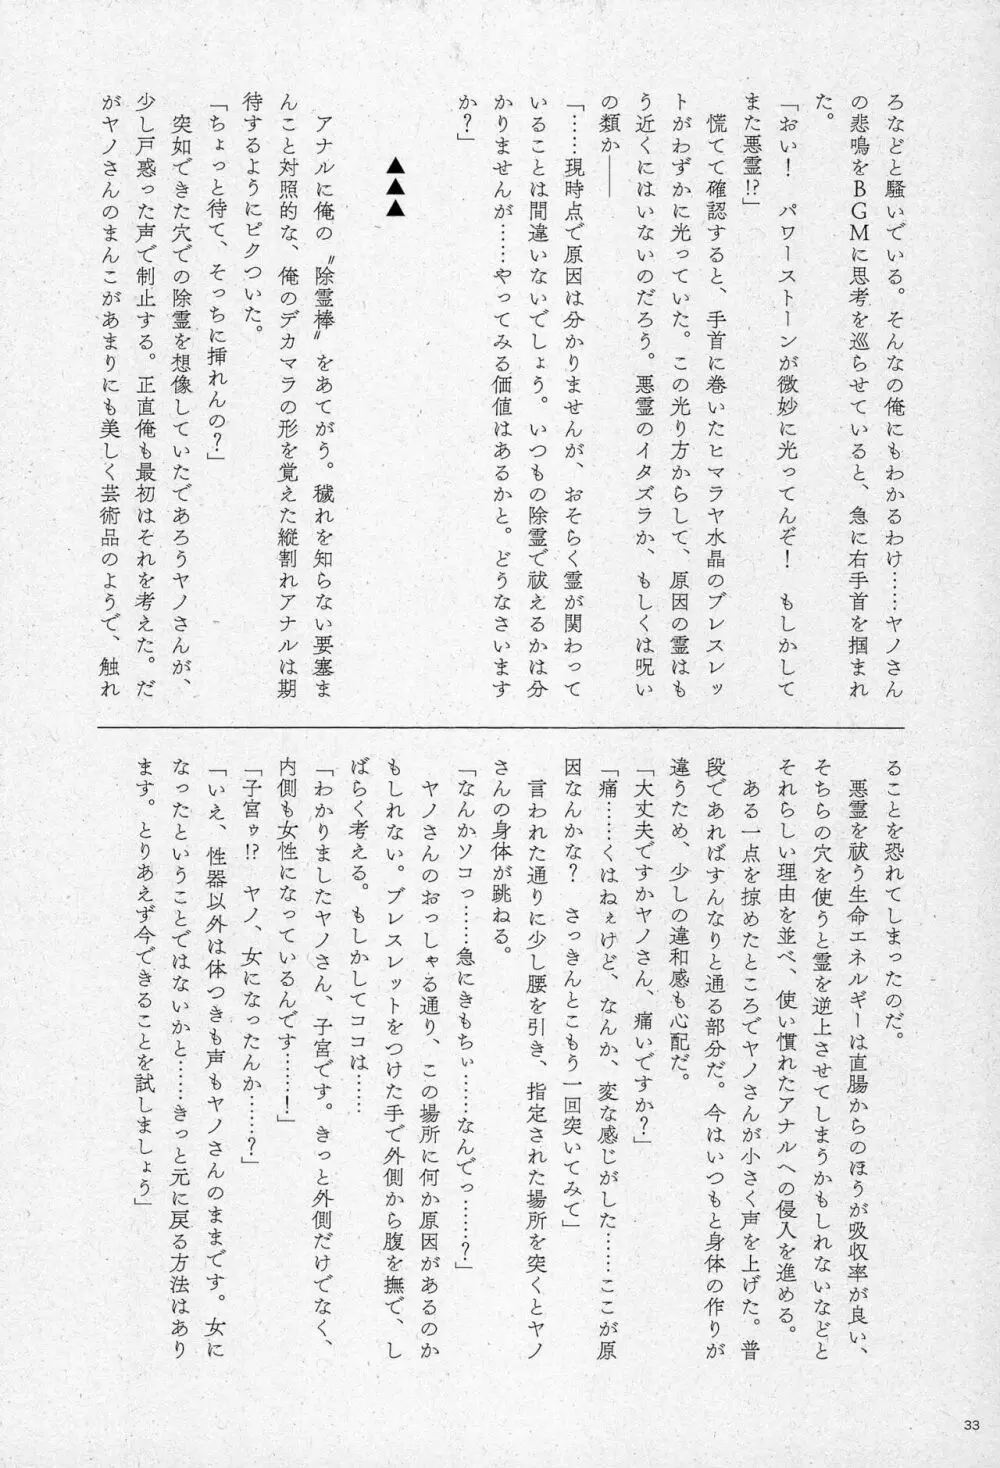 ろなどと騒いでいる。そんなの俺にもわかるわけ……ヤノさん
の悲鳴をBGMに思考を巡らせていると、急に右手首を掴まれ
た。
「おい！　パワーストーンが微妙に光ってんぞ！　もしかして
また悪霊!?」
　慌てて確認すると、手首に巻いたヒマラヤ水晶のブレスレッ
トがわずかに光っていた。この光り方からして、原因の霊はも
う近くにはいないのだろう。悪霊のイタズラか、もしくは呪い
の類か――
「……現時点で原因は分かりませんが、おそらく霊が関わって
いることは間違いないでしょう。いつもの除霊で祓えるかは分
かりませんが……やってみる価値はあるかと。どうなさいます
か？」
▲▲▲
　アナルに俺の〝除霊棒〟をあてがう。穢れを知らない要塞ま
んこと対照的な、俺のデカマラの形を覚えた縦割れアナルは期
待するようにピクついた。
「ちょっと待て、そっちに挿れんの？」
　突如できた穴での除霊を想像していたであろうヤノさんが、
少し戸惑った声で制止する。正直俺も最初はそれを考えた。だ
がヤノさんのまんこがあまりにも美しく芸術品のようで、触れ
ることを恐れてしまったのだ。
　悪霊を祓う生命エネルギーは直腸からのほうが吸収率が良い、
そちらの穴を使うと霊を逆上させてしまうかもしれないなどと
それらしい理由を並べ、使い慣れたアナルへの侵入を進める。
　ある一点を掠めたところでヤノさんが小さく声を上げた。普
段であればすんなりと通る部分だ。今はいつもと身体の作りが
違うため、少しの違和感も心配だ。
「大丈夫ですかヤノさん、痛いですか？」
「痛……くはねぇけど、なんか、変な感じがした……ここが原
因なんかな？　さっきんとこもう一回突いてみて」
　言われた通りに少し腰を引き、指定された場所を突くとヤノ
さんの身体が跳ねる。
「なんかソコっ……急にきもちぃ……なんでっ……？」
　ヤノさんのおっしゃる通り、この場所に何か原因があるのか
もしれない。ブレスレットをつけた手で外側から腹を撫で、し
ばらく考える。もしかしてココは……
「わかりましたヤノさん、子宮です。きっと外側だけでなく、
内側も女性になっているんです……！」
「子宮ゥ!?　ヤノ、女になったんか……？」
「いえ、性器以外は体つきも声もヤノさんのままです。女に
なったということではないかと……きっと元に戻る方法はあり
ます。とりあえず今できることを試しましょう」
33